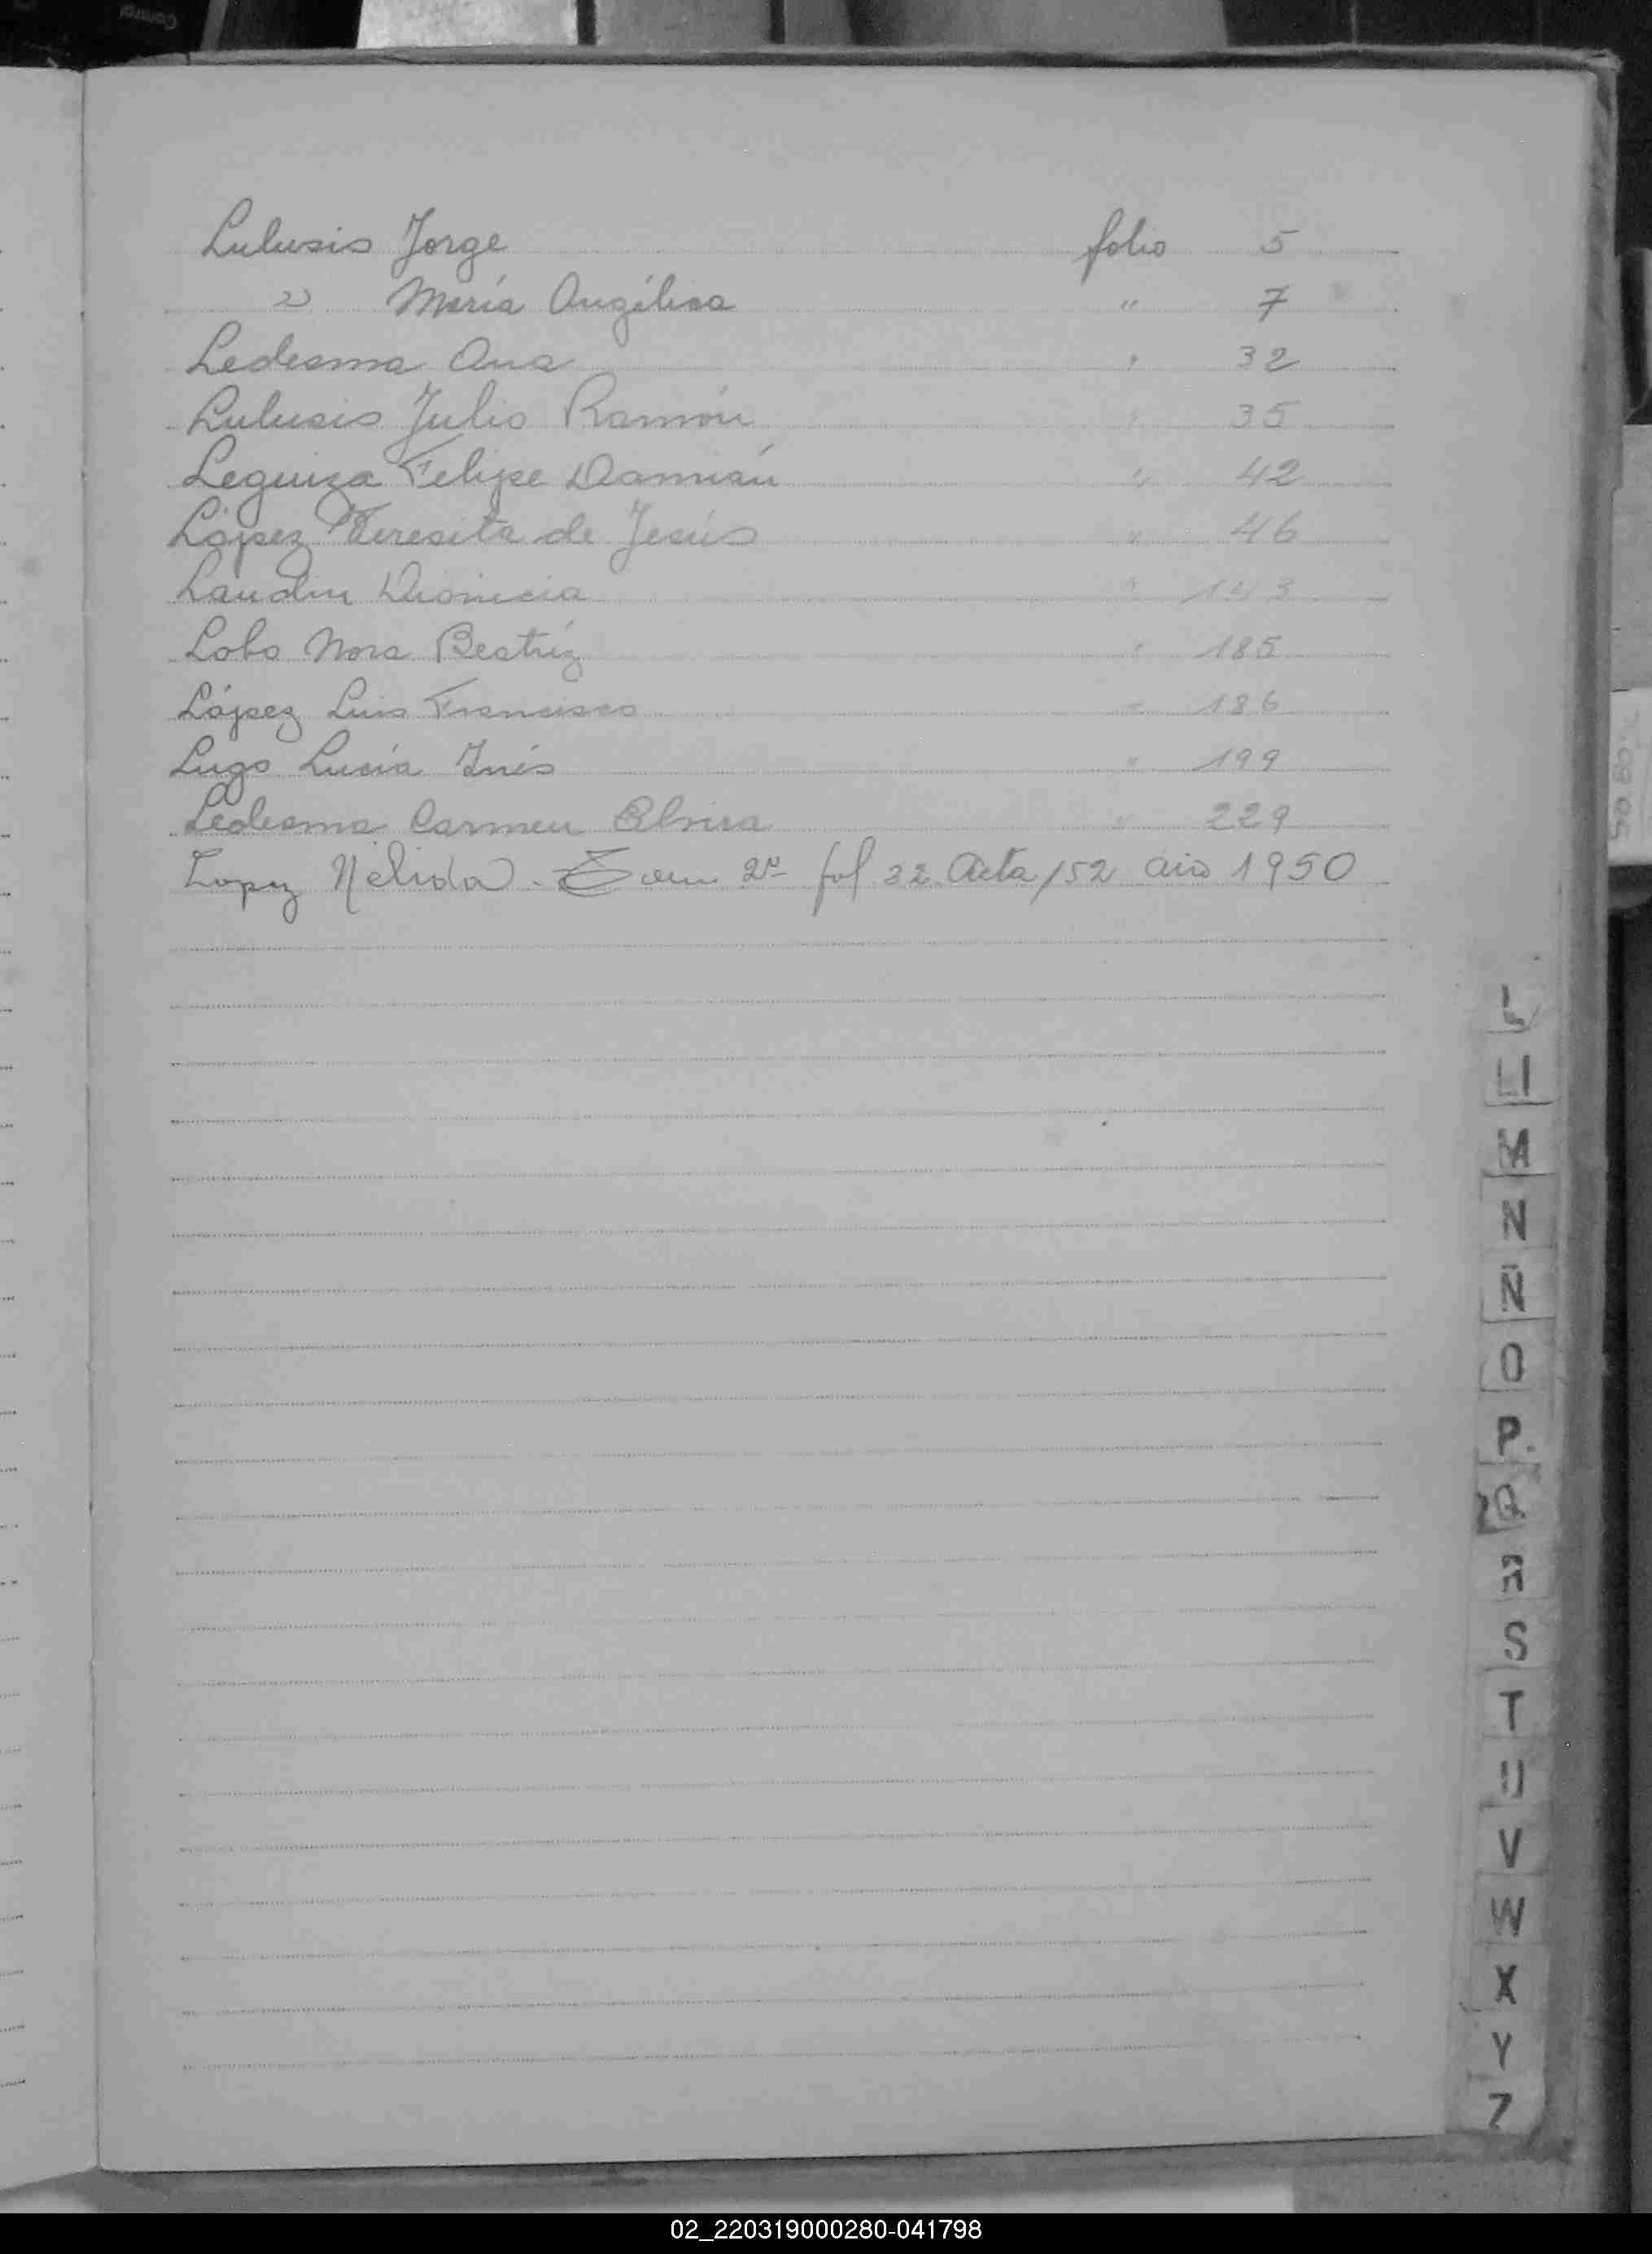 Lulusis Jorge folio 5
" María Angélica " 7
Ledesma Ana " 32
Lulusis Julio Ramón " 35
Leguiza Felipe Damián " 42
López Teresita de Jesús " 46
Landin Dionicia " 143
Lobo Nora Beatríz " 185
López Luis Francisco " 186
Lugo Lucía Inés " 199
Ledesma Carmen Elvira " 229
Lopez Nélida - Tom 2º fol 32 Acta 152 año 1950
L
Ll
M
N
Ñ
O
P
Q
R
S
T
U
V
W
X
Y
Z
02_220319000280-041798